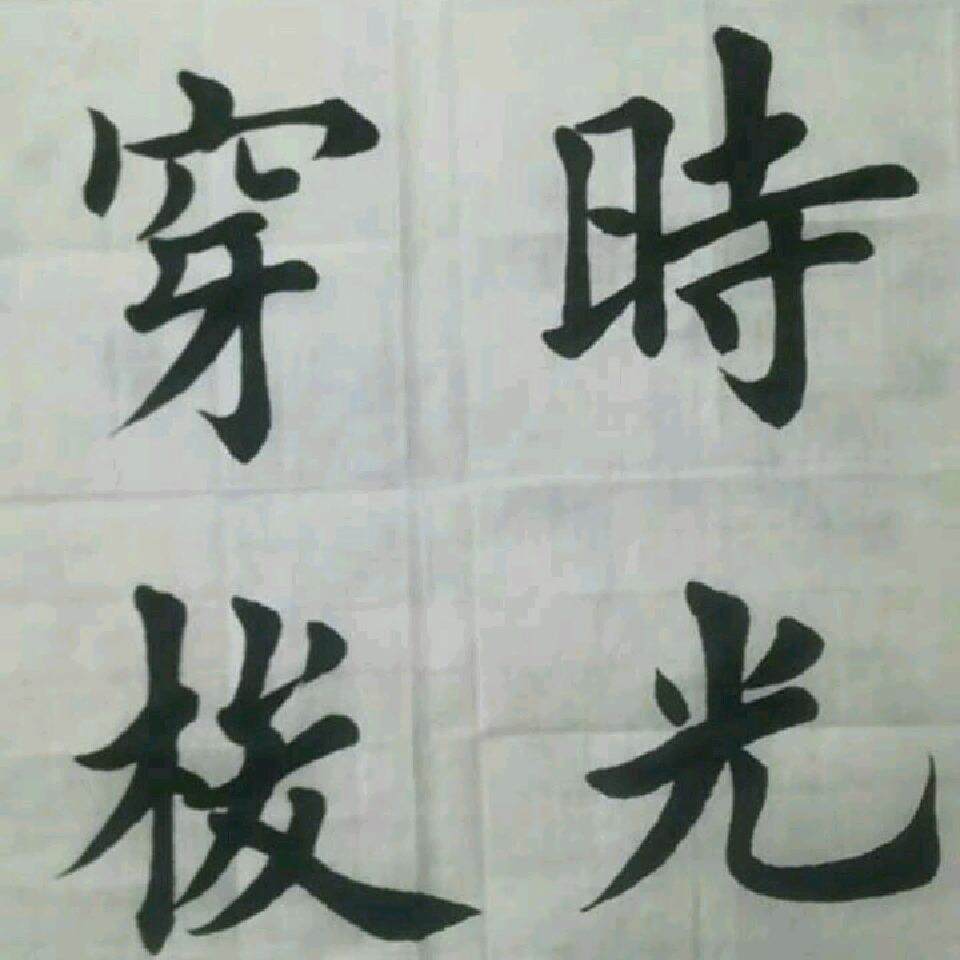 時光
穿梭